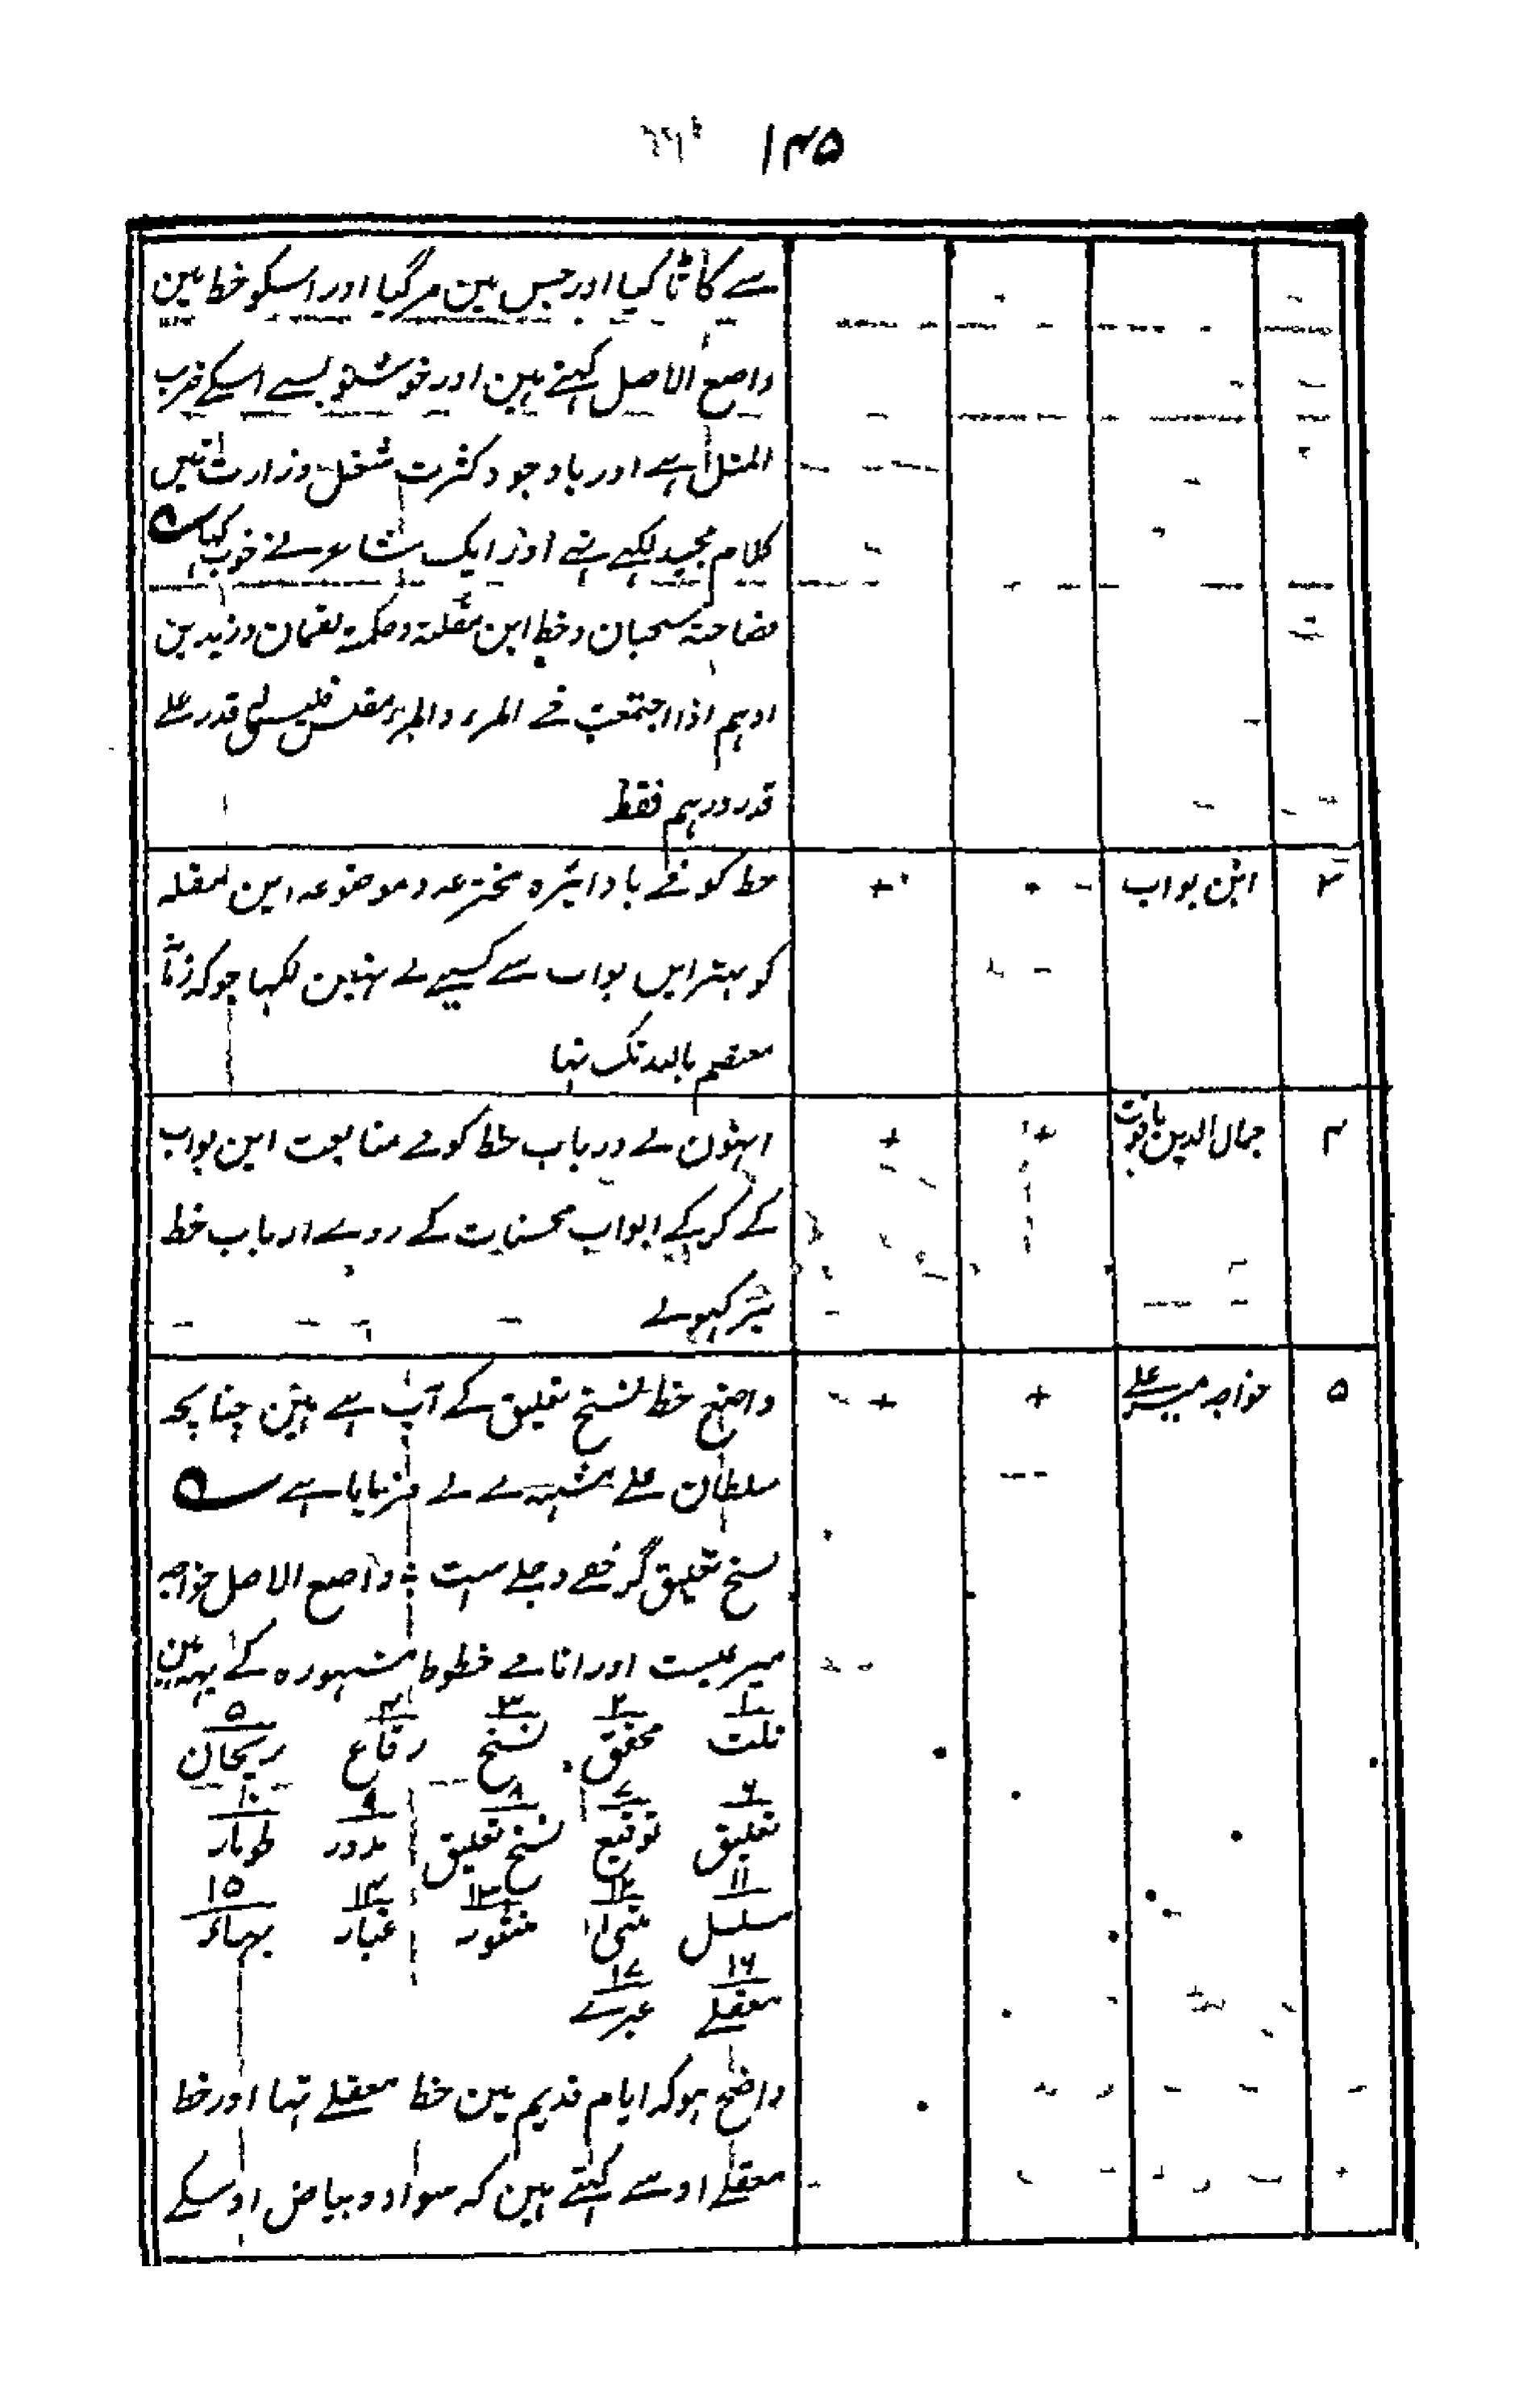 ۱۴۵
سے کاٹا گیا اور حبس مین مر گیا اور اسکو خط مین
واضع الاصل کہتے ہین اور خوشنویسے اسکے ضرب
المثل ہے اور باوجود کثرت شغل وزارت تیس
کلام مجید لکہے تہے اور ایک شاعر نے خوب کہا ہے
فصاحتہ سحبان و خط ابن مقلتہ وحکمتہ لقمان وزہد بن
ادہم اذا اجتمعت فے المرء والمرء مفلس فلیس لہ قدر علے
قدر درہم فقط
۳ ابن بواب + خط کوفے با دائرہ مخترعہ و موضوعہ ابن مقلہ
کو بہتر ابن بواب سے کسیے نے نہین لکہا جو کہ زمانہ
معتصم باللہ تک تہا
۴ جمال الدین یاقوت + + انہون نے در باب خط کوفے متابعت ابن بواب
کے کر کے ابواب محسنات کے روے ارباب خط
پر کہولے
۵ خواجہ میر علے + + واضع خط نسخ تعلیق کے آپ ہے ہین چنانچہ
سلطان علے مشہدے نے فرمایا ہے
نسخ تعلیق گر خفے و جلے ست : واضع الاصل خواجہ
میر علیست اور اسامے خطوط مشہورہ کے یہہ ہین
۱ ۲ ۳ ۴ ۵
ثلث محقق نسخ رقاع ریحان
۶ ۷ ۸ ۹ ۱۰
تعلیق توقیع نسخ تعلیق مدور طومار
۱۱ ۱۲ ۱۳ ۱۴ ۱۵
مسلسل منثور غبار بہار
۱۶ ۱۷
معقلے عبرے
واضح ہو کہ ایام قدیم مین خط معقلے تہا اور خط
معقلے اوسے کہتے ہین کہ سواد و بیاض اوسکے